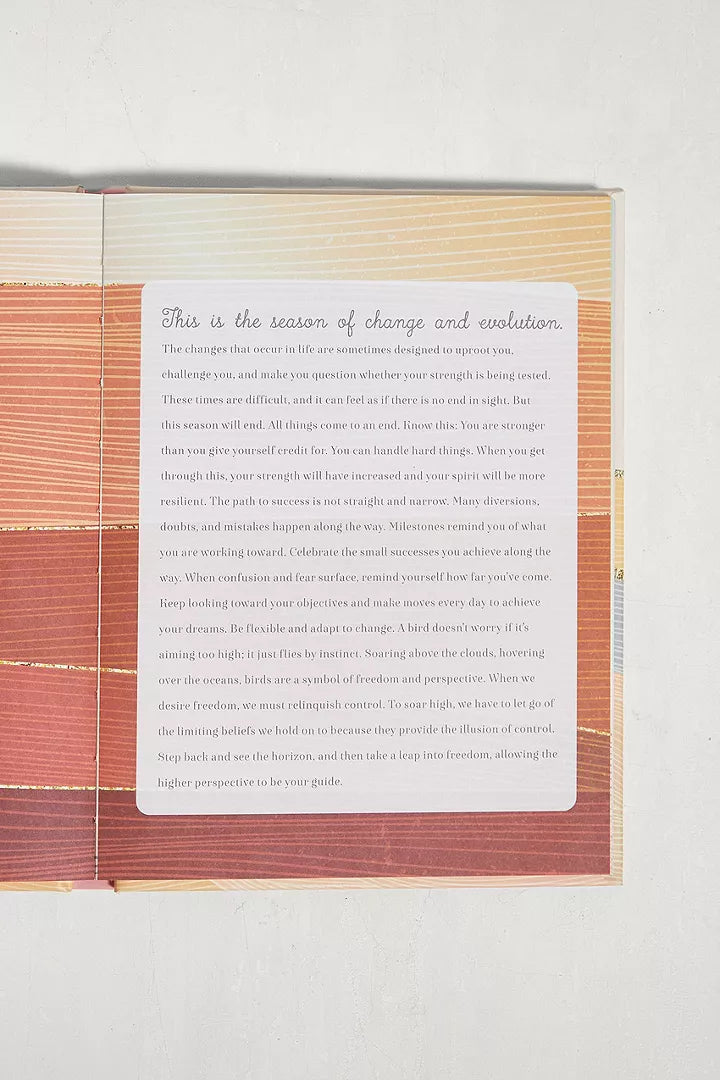 This is the season of change and evolution.
The changes that occur in life are sometimes designed to uproot you,
challenge you, and make you question whether your strength is being tested.
These times are difficult, and it can feel as if there is no end in sight. But
this season will end. All things come to an end. Know this: You are stronger
than you give yourself credit for. You can handle hard things. When you get
through this, your strength will have increased and your spirit will be more
resilient. The path to success is not straight and narrow. Many diversions,
doubts, and mistakes happen along the way. Milestones remind you of what
you are working toward. Celebrate the small successes you achieve along the
way. When confusion and fear surface, remind yourself how far you've come.
Keep looking toward your objectives and make moves every day to achieve
your dreams. Be flexible and adapt to change. A bird doesn't worry if it's
aiming too high; it just flies by instinct. Soaring above the clouds, hovering
over the oceans, birds are a symbol of freedom and perspective. When we
desire freedom, we must relinquish control. To soar high, we have to let go of
the limiting beliefs we hold on to because they provide the illusion of control.
Step back and see the horizon, and then take a leap into freedom, allowing the
higher perspective to be your guide.